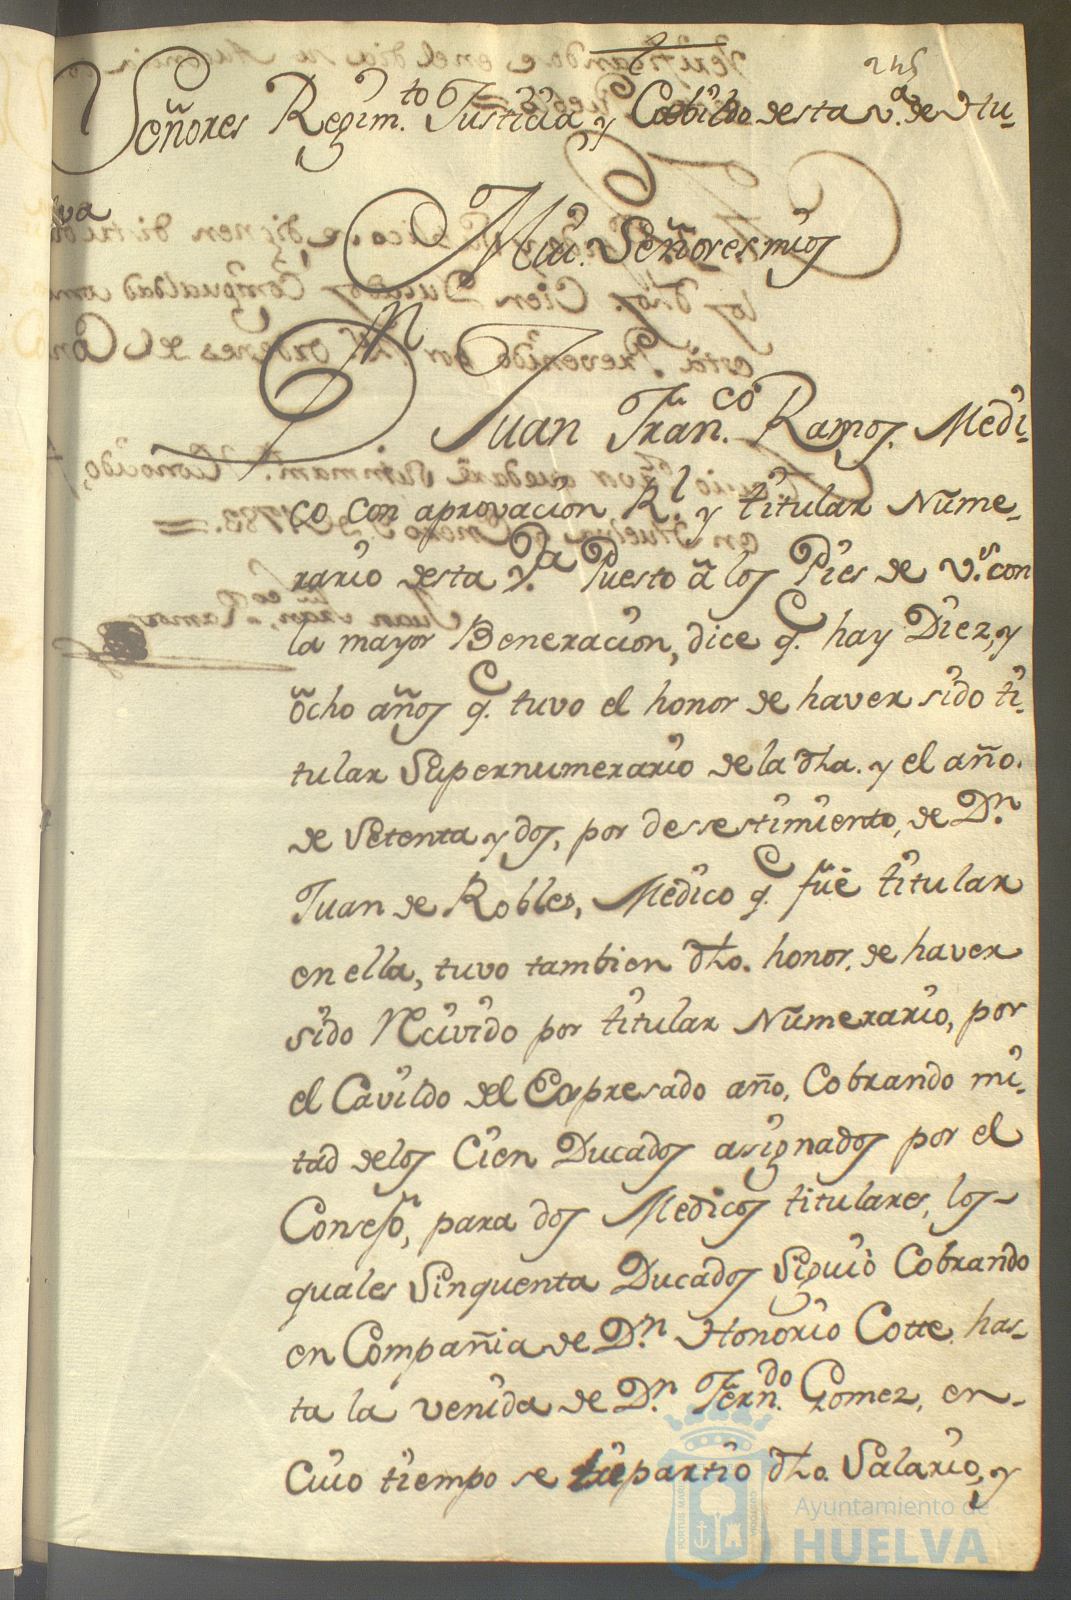 245
Señores Regim.to Justicia y Cabildo desta v.a de Hu-
lva
Mui Señores mios
Dn Juan Fran.co Ramos, Medi-
co con aprovacion R.l y titular Nume-
rario desta V.a Puesto â los Pies de V.s con
la mayor Beneracion, dice q.e hay Diez, y
ôcho años q.e tuvo el honor de haver sido ti-
tular Supernumerario de la dha. y el año.
de Setenta y dos, por desestimiento, de D.n
Juan de Robles, Medico q.e fue titular
en ella, tuvo tambien dho. honor, de haver
sido Recivido por titular Numerario, por
el Cavildo del Expresado año, Cobrando mi-
tad delos Cien Ducados asignados por el
Consejo, para dos Medicos titulares, los
quales Sinquenta Ducados Siguio Cobrando
en Compañia de D.n Honorio Cotte, has-
ta la venida de D.n Fern.do Gomez, en-
Cuio tiempo se tripartio dho. Salario, y
Ayuntamiento de
HUELVA